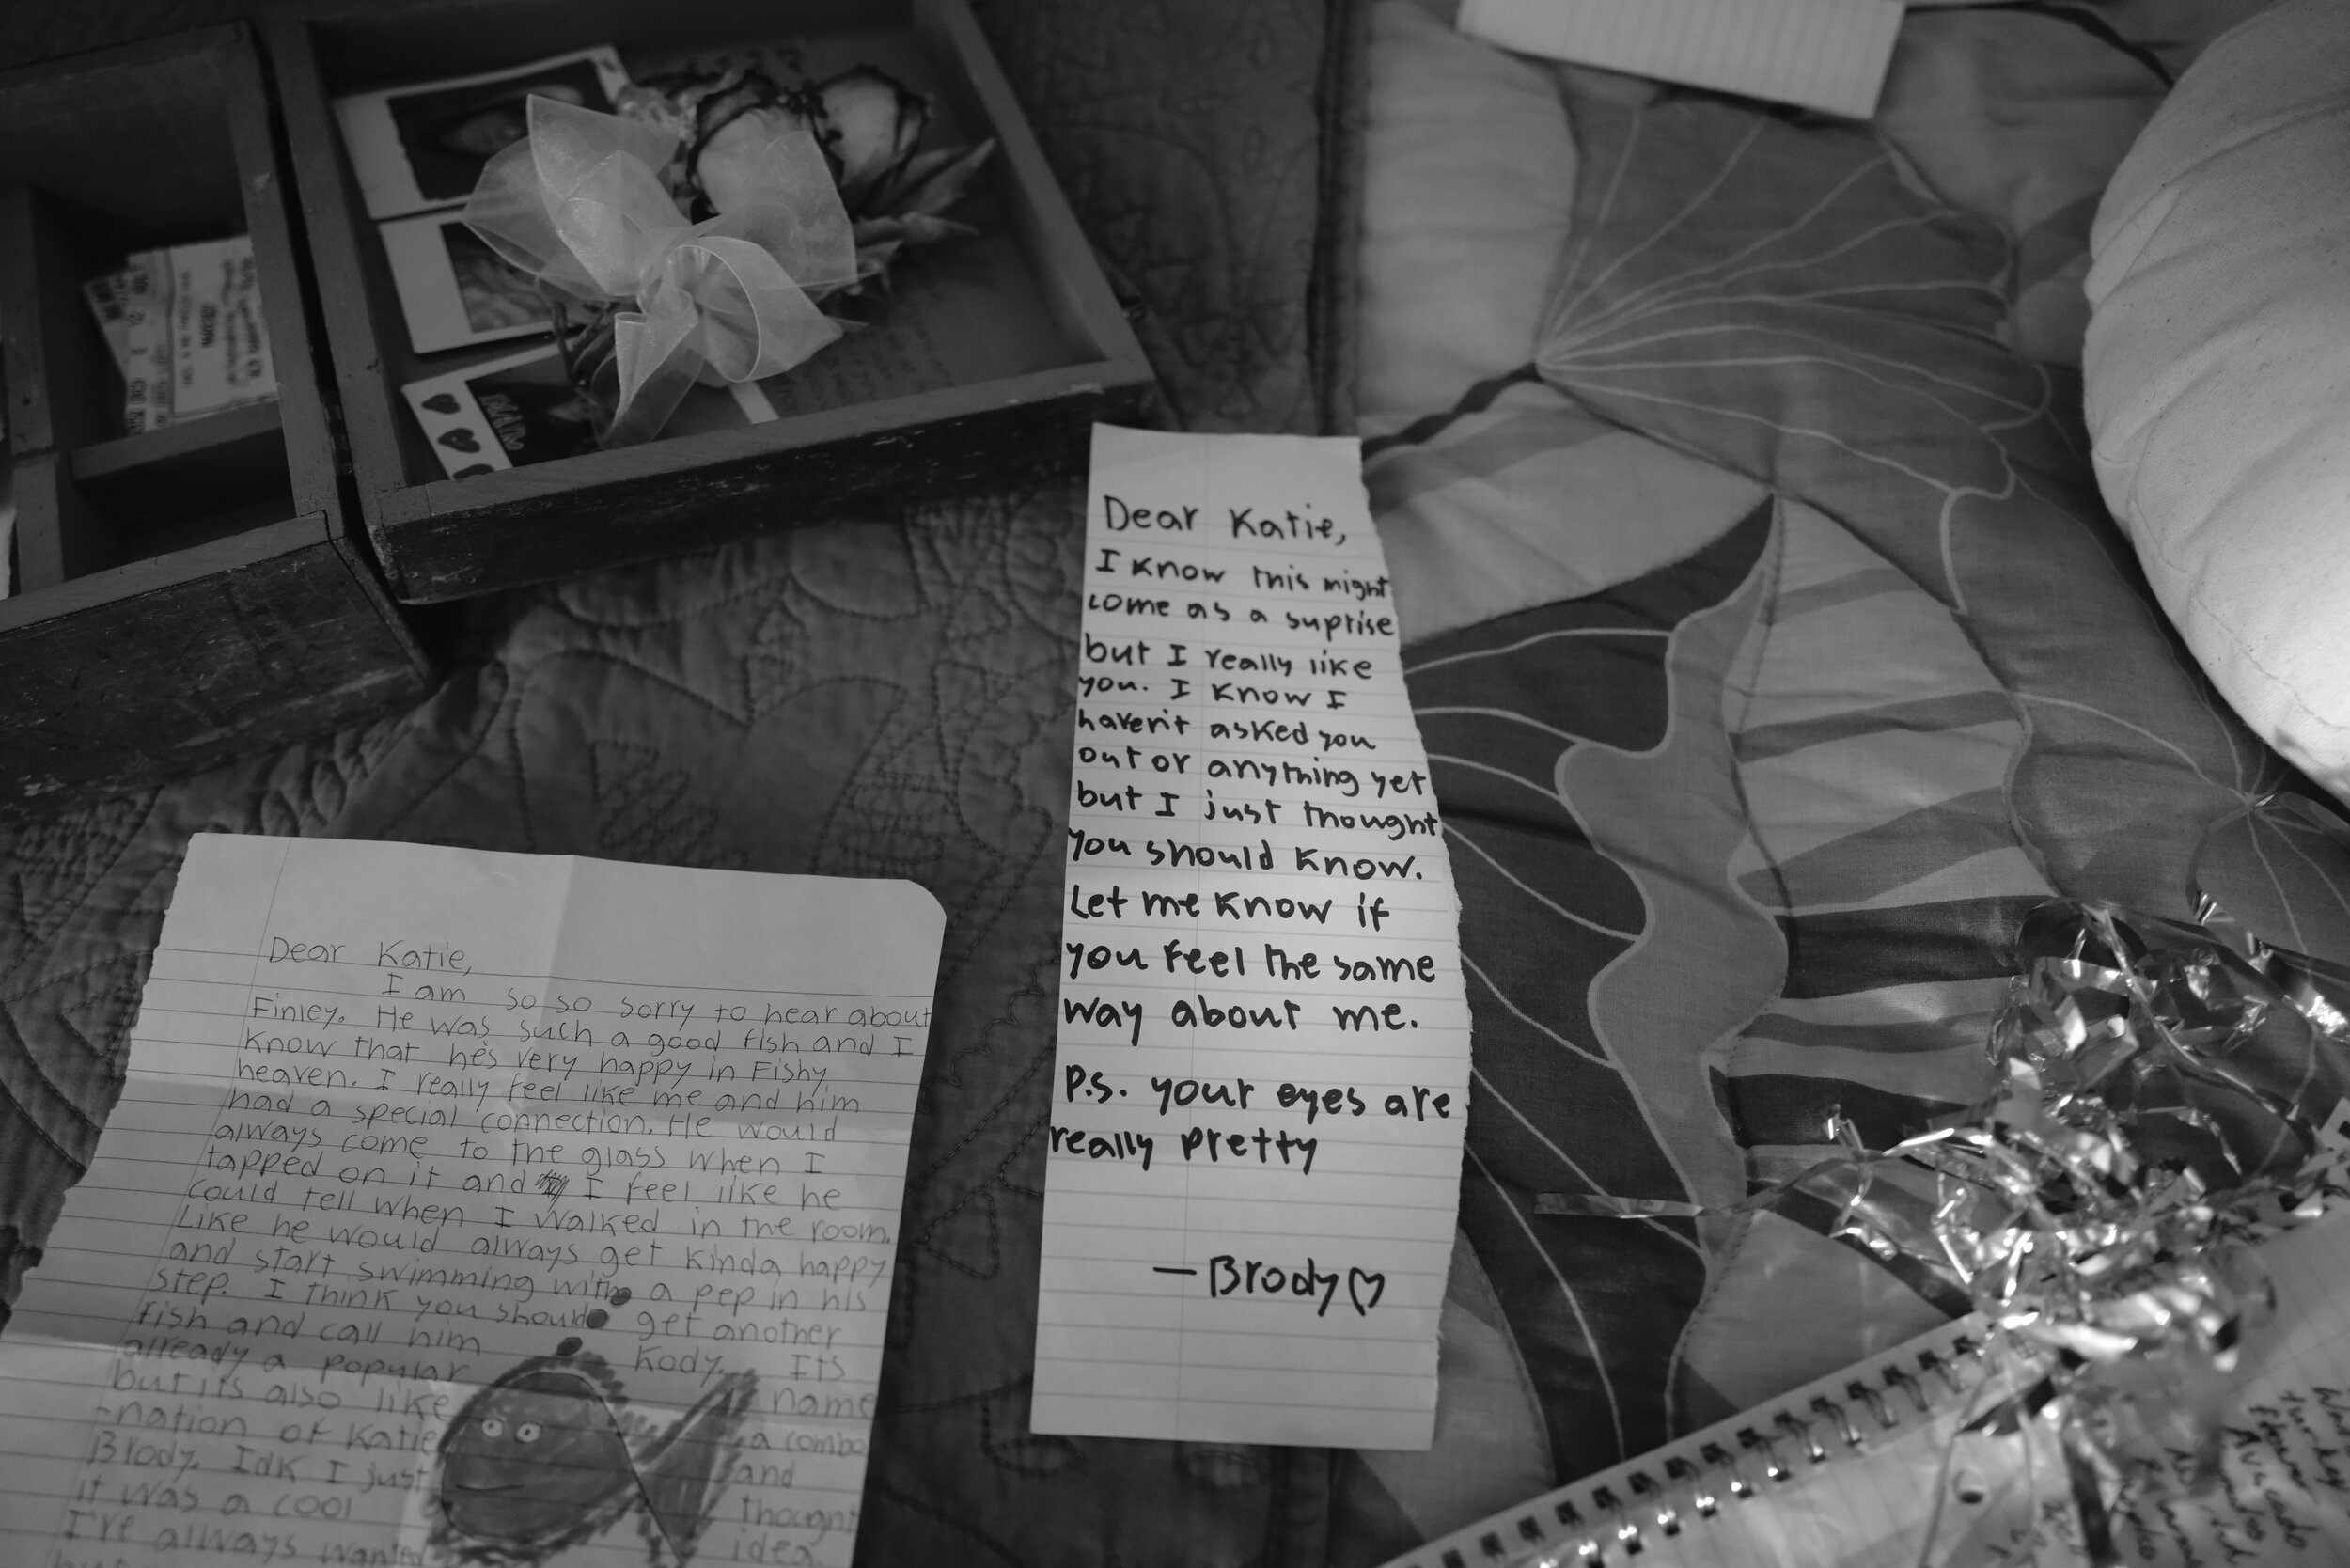 Dear Katie,
I know this might
come as a suprise
but I really like
you. I know I
haven't asked you
out or anything yet
but I just thought
you should know.
Let me know if
you feel the same
way about me.
P.s. your eyes are
really pretty
— Brody ♡
Dear Katie,
I am so so sorry to hear about
Finley. He was such a good fish and I
know that he's very happy in Fishy
heaven. I really feel like me and him
had a special connection. He would
always come to the glass when I
tapped on it and I feel like he
could tell when I walked in the room.
Like he would always get kinda happy
and start swimming with a pep in his
step. I think you should get another
fish and call him Kody. Its
already a popular name
but its also like a combo
-nation of Katie and
Brody. Idk I just thought
it was a cool idea.
I've always wanted
Avacado